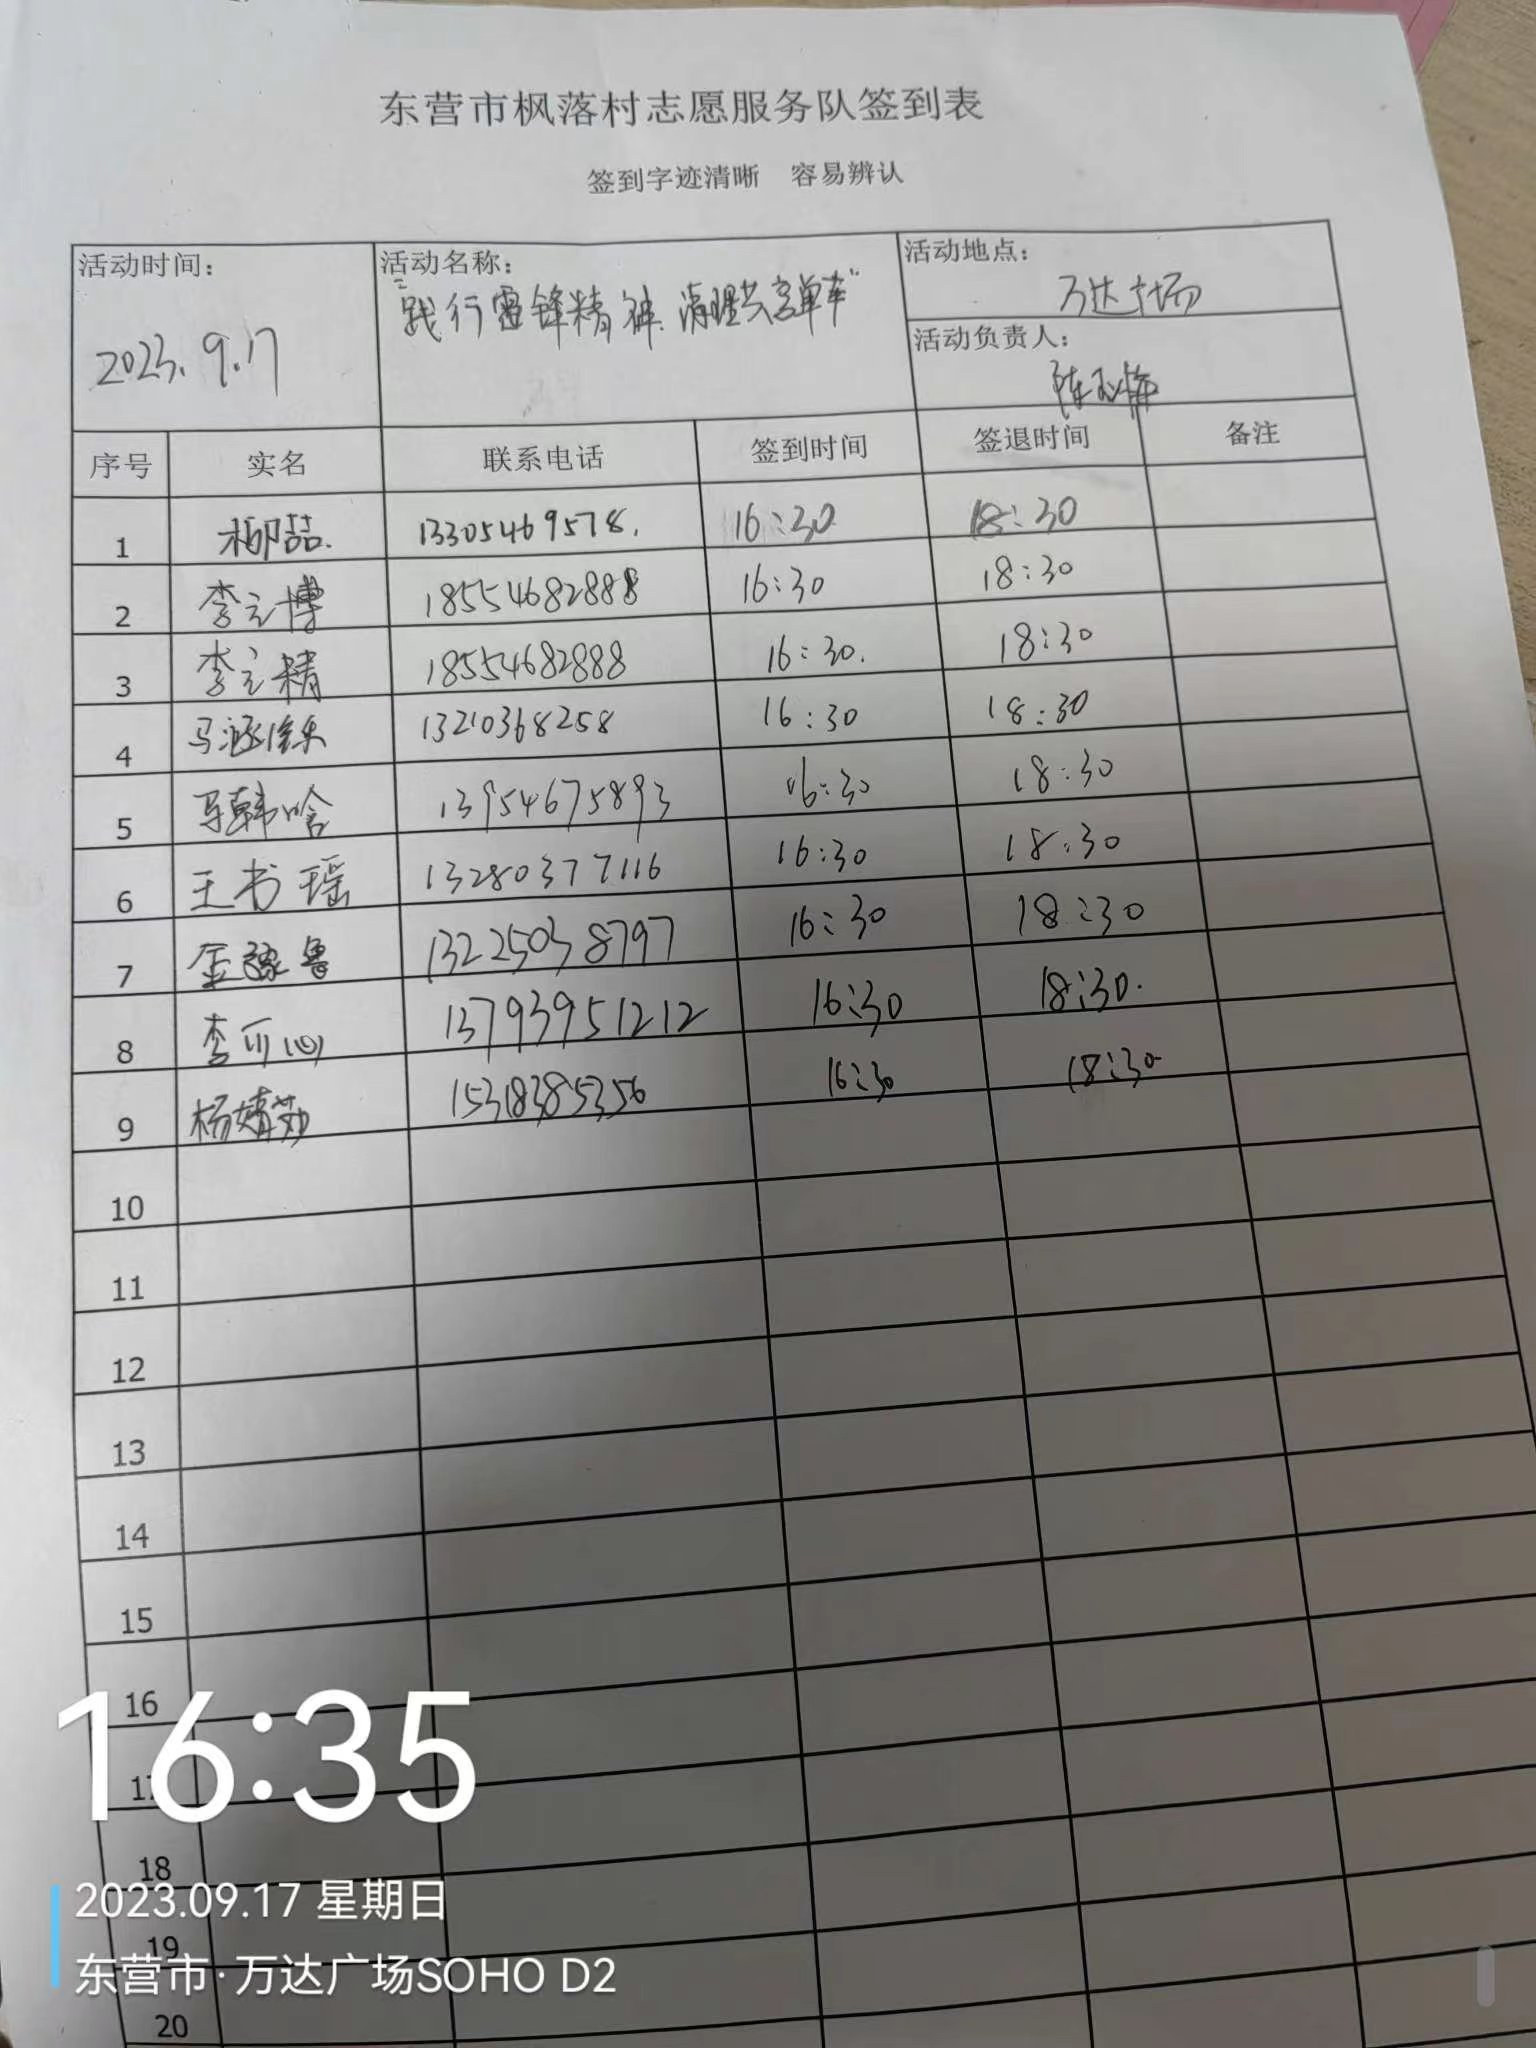 东营市枫落村志愿服务队签到表
签到字迹清晰 容易辨认
活动时间： 活动名称： 活动地点：
2023.9.17 "践行雷锋精神.清理共享单车" 万达广场
活动负责人：
陈
序号 实名 联系电话 签到时间 签退时间 备注
1 柳喆. 13305469578. 16:30 18:30
2 李立博 18554682888 16:30 18:30
3 李立精 18554682888 16:30. 18:30
4 马涵 13210368258 16:30 18:30
5 马韩晗 13954675893 16:30 18:30
6 王书瑶 13280377116 16:30 18:30
7 金 鲁 13225038797 16:30 18:30
8 李可心 13793951212 16:30 18:30.
9 杨婧茹 15318385356 16:30 18:30
10
11
12
13
14
15
16
16:35
17
18
2023.09.17 星期日
19
东营市·万达广场SOHO D2
20